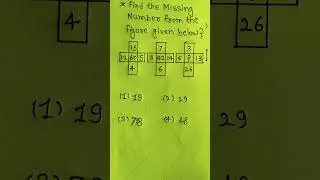 * Find the Missing
Number from the
figure given below?
15 7 3
12 60 5 3 42 14 6 ? 13
4 6 26
(1) 19 (2) 29
(3) 78 (4) 48
4
26
29